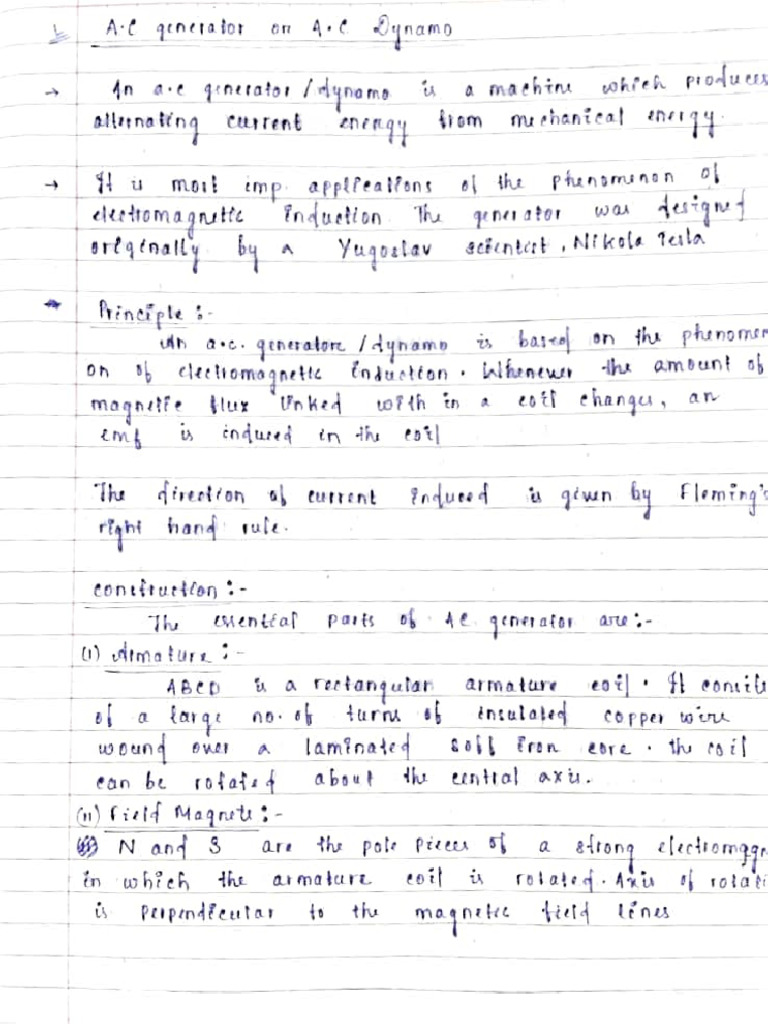 A.C generator or A.C. Dynamo
→ An a.c generator/dynamo is a machine which produces
alternating current energy from mechanical energy.
→ It is most imp. applications of the phenomenon of
electromagnetic induction. The generator was designed
originally by a Yugoslav scientist, Nikola Tesla
Principle :-
An a.c. generatore/dynamo is based on the phenomen
on of electromagnetic induction. Whenever the amount of
magnetic flux linked with in a coil changes, an
emf is induced in the coil
The direction of current induced is given by Fleming's
right hand rule.
construction :-
The essential parts of AC generator are :-
(I) Armature :-
ABCD is a rectangular armature coil. It consists
of a large no. of turns of insulated copper wire
wound over a laminated soft iron core. the coil
can be rotated about the central axis.
(II) Field Magnets :-
N and S are the pole pieces of a strong electromagn
in which the armature coil is rotated. Axis of rotati
is perpendicular to the magnetic field lines